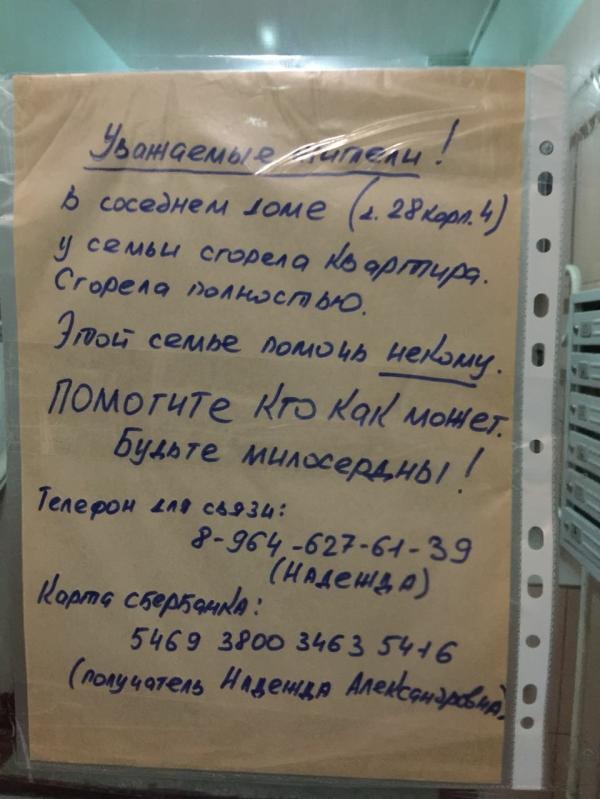 Уважаемые жители!
В соседнем доме (д. 28 корп. 4)
у семьи сгорела квартира.
Сгорела полностью.
Этой семье помочь некому.
ПОМОГИТЕ КТО КАК МОЖЕТ.
Будьте милосердны!
Телефон для связи:
8-964-627-61-39
(НАДЕЖДА)
Карта сбербанка:
5469 3800 3463 5416
(получатель Надежда Александровна)